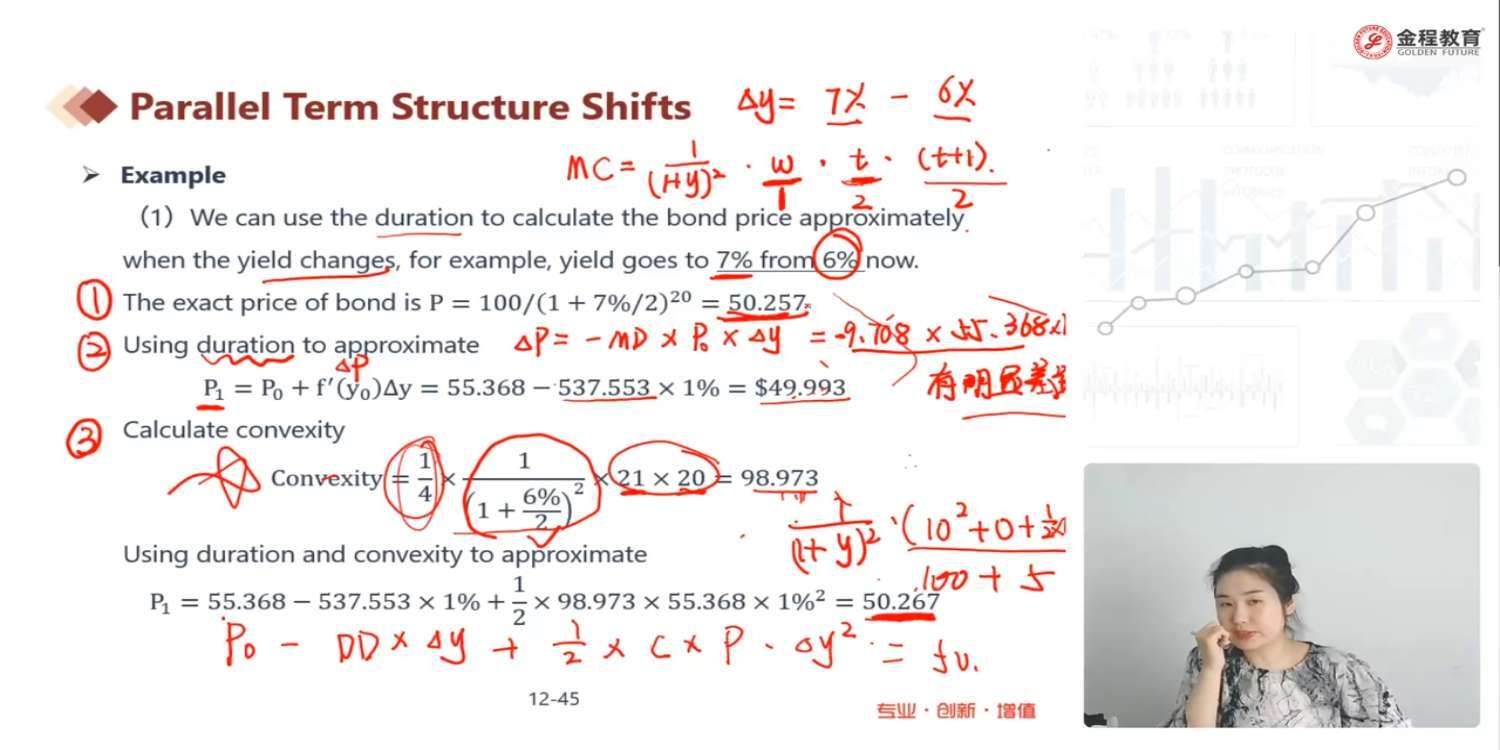 金程教育
GOLDEN FUTURE
Parallel Term Structure Shifts
Δy = 7% - 6%
MC = 1/(1+y)² · w/1 · t/2 · (t+1)/2
➢ Example
（1）We can use the duration to calculate the bond price approximately
when the yield changes, for example, yield goes to 7% from 6% now.
① The exact price of bond is P = 100/(1 + 7%/2)²⁰ = 50.257
② Using duration to approximate ΔP = - MD × P₀ × Δy = -9.708 × 55.368 ×
ΔP
P₁ = P₀ + f′(y₀)Δy = 55.368 − 537.553 × 1% = $49.993
有明显差
③ Calculate convexity
Convexity = 1/4 × 1/(1 + 6%/2)² × 21 × 20 = 98.973
1/(1+y)² · (10² + 0 + 1/2
100 + 5
Using duration and convexity to approximate
P₁ = 55.368 − 537.553 × 1% + 1/2 × 98.973 × 55.368 × 1%² = 50.267
P₀ - DD × Δy + 1/2 × C × P · Δy² =
12-45
专业·创新·增值